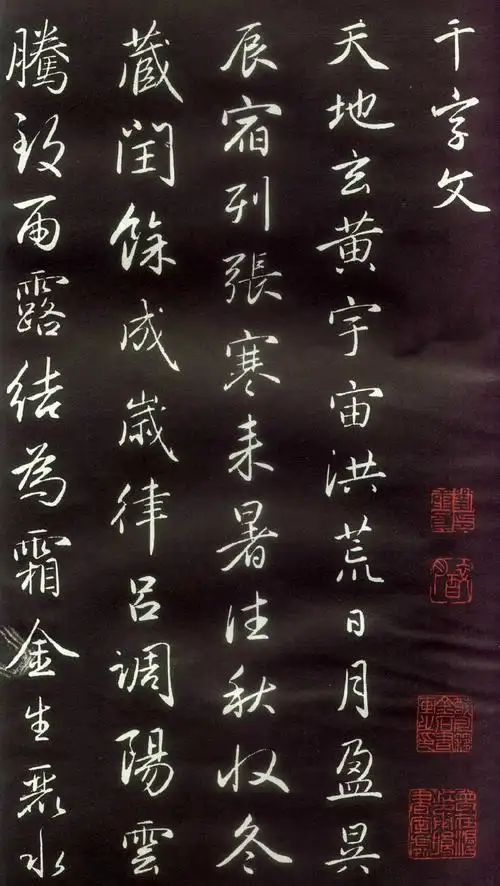 千字文
天地玄黄宇宙洪荒日月盈昃
辰宿列張寒来暑往秋收冬
蔵閏餘成歲律呂調陽雲
騰致雨露結為霜金生麗水